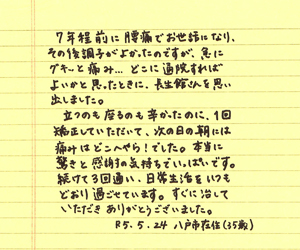 7年程前に腰痛でお世話になり、
その後調子がよかったのですが、急に
グキーと痛み…どこに通院すれば
よいかと思ったときに、長生館さんを思い
出しました。
立つのも座るのも辛かったのに、1回
矯正していただいて、次の日の朝には
痛みはどこへやら!でした。本当に
驚きと感謝の気持ちでいっぱいです。
続けて3回通い、日常生活をいつも
どおり過ごせています。すぐに治して
いただきありがとうございました。
R5.5.24 八戸市在住(35歳)